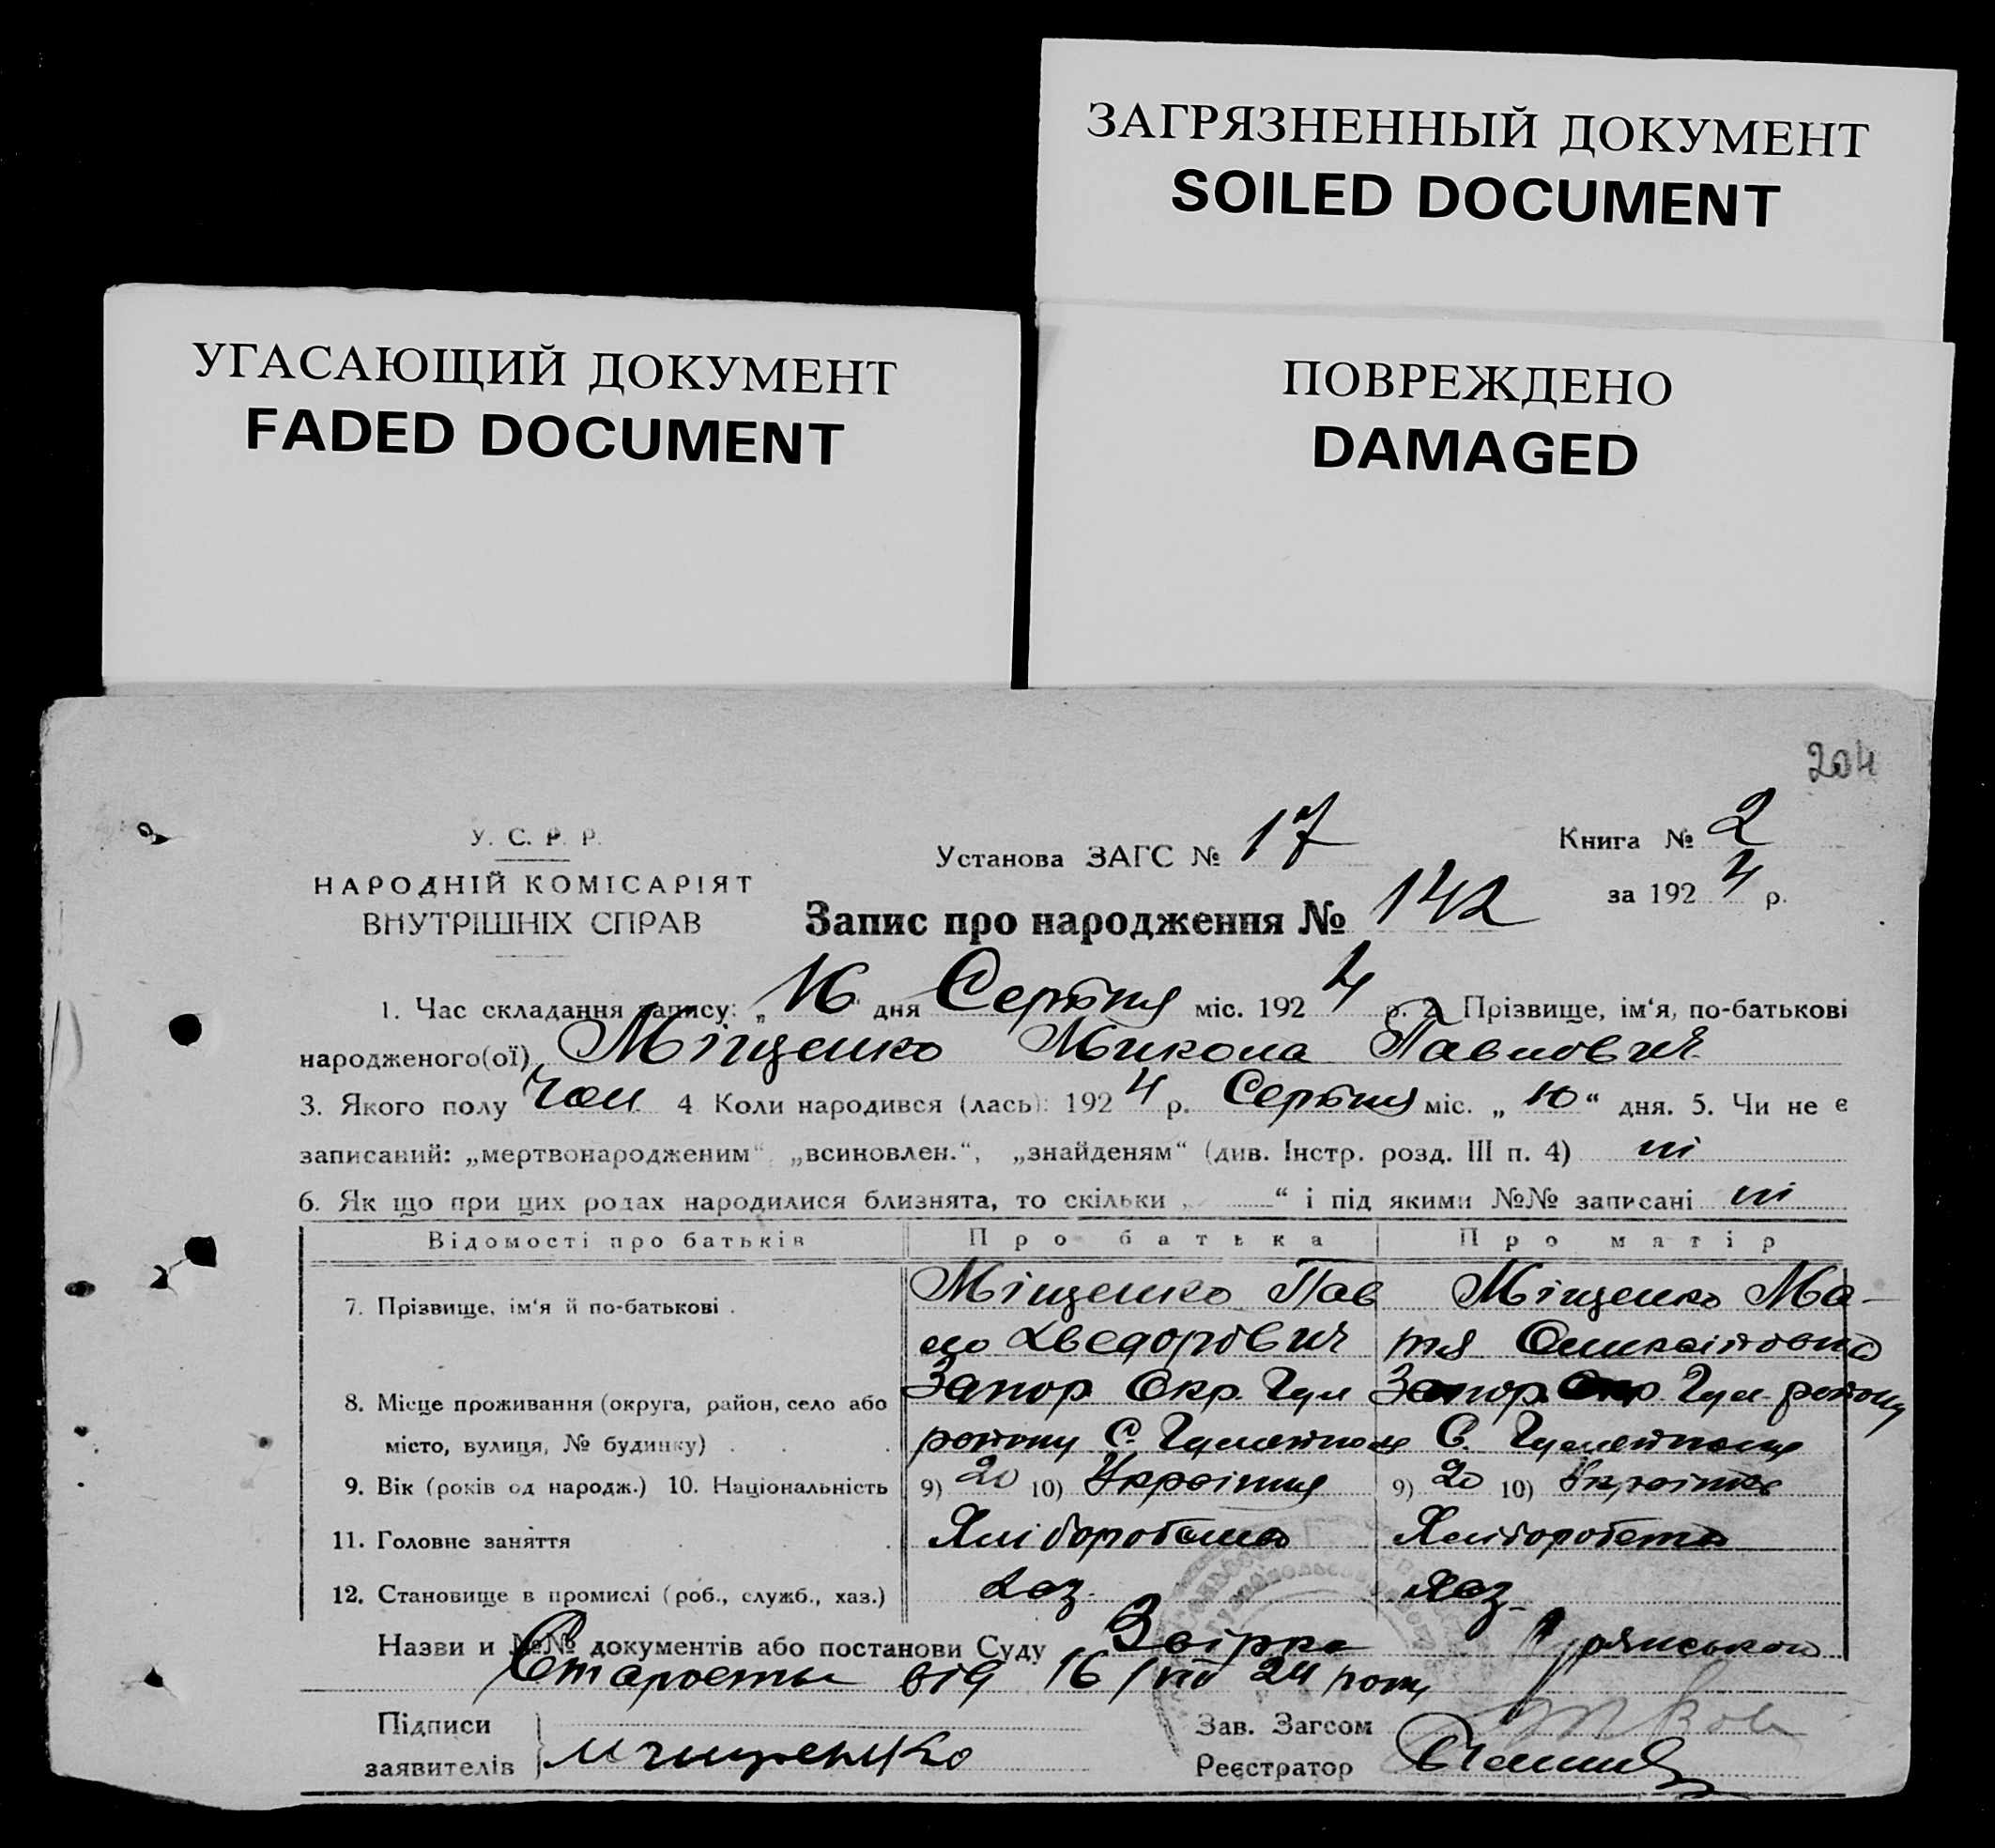 ЗАГРЯЗНЕННЫЙ ДОКУМЕНТ
SOILED DOCUMENT
УГАСАЮЩИЙ ДОКУМЕНТ
FADED DOCUMENT
ПОВРЕЖДЕНО
DAMAGED
204
У. С. Р. Р.
НАРОДНІЙ КОМІСАРІЯТ
ВНУТРІШНІХ СПРАВ
Установа ЗАГС № 17
Книга № 2
за 1924 р.
Запис про народження № 142
1. Час складання запису: „16" дня Серпня міс. 1924 р. 2. Прізвище, ім'я, по-батькові
народженого(ої) Міщенко Микола Павлович
3. Якого полу Чол. 4 Коли народився (лась): 1924 р. Серпня міс. „10" дня. 5. Чи не є
записаний: „мертвонародженим", „всиновлен.", „знайденям" (див. Інстр. розд. III п. 4) ні
6. Як що при цих родах народилися близнята, то скільки „ " і під якими №№ записані ні
Відомості про батьків Про батька Про матір
7. Прізвище, ім'я й по-батькові . Міщенко Пав Міщенко Ма-
ло Хведорович
8. Місце проживання (округа, район, село або Запор. Окр. Гул Запор. Окр. Гул. району
місто, вулиця, № будинку) . . . району С. С.
9. Вік (років од народж.) 10. Національність 9) 20 10) Українц 9) 20 10) Українка
11. Головне заняття . . . Хліборобство Хліборобство
12. Становище в промислі (роб., служб., хаз.) Хаз. Хаз.
Назви и №№ документів або постанови Суду
Старости від 16/VIII 24 року
Підписи
заявителів Міщенко
Зав. Загсом
Реєстратор